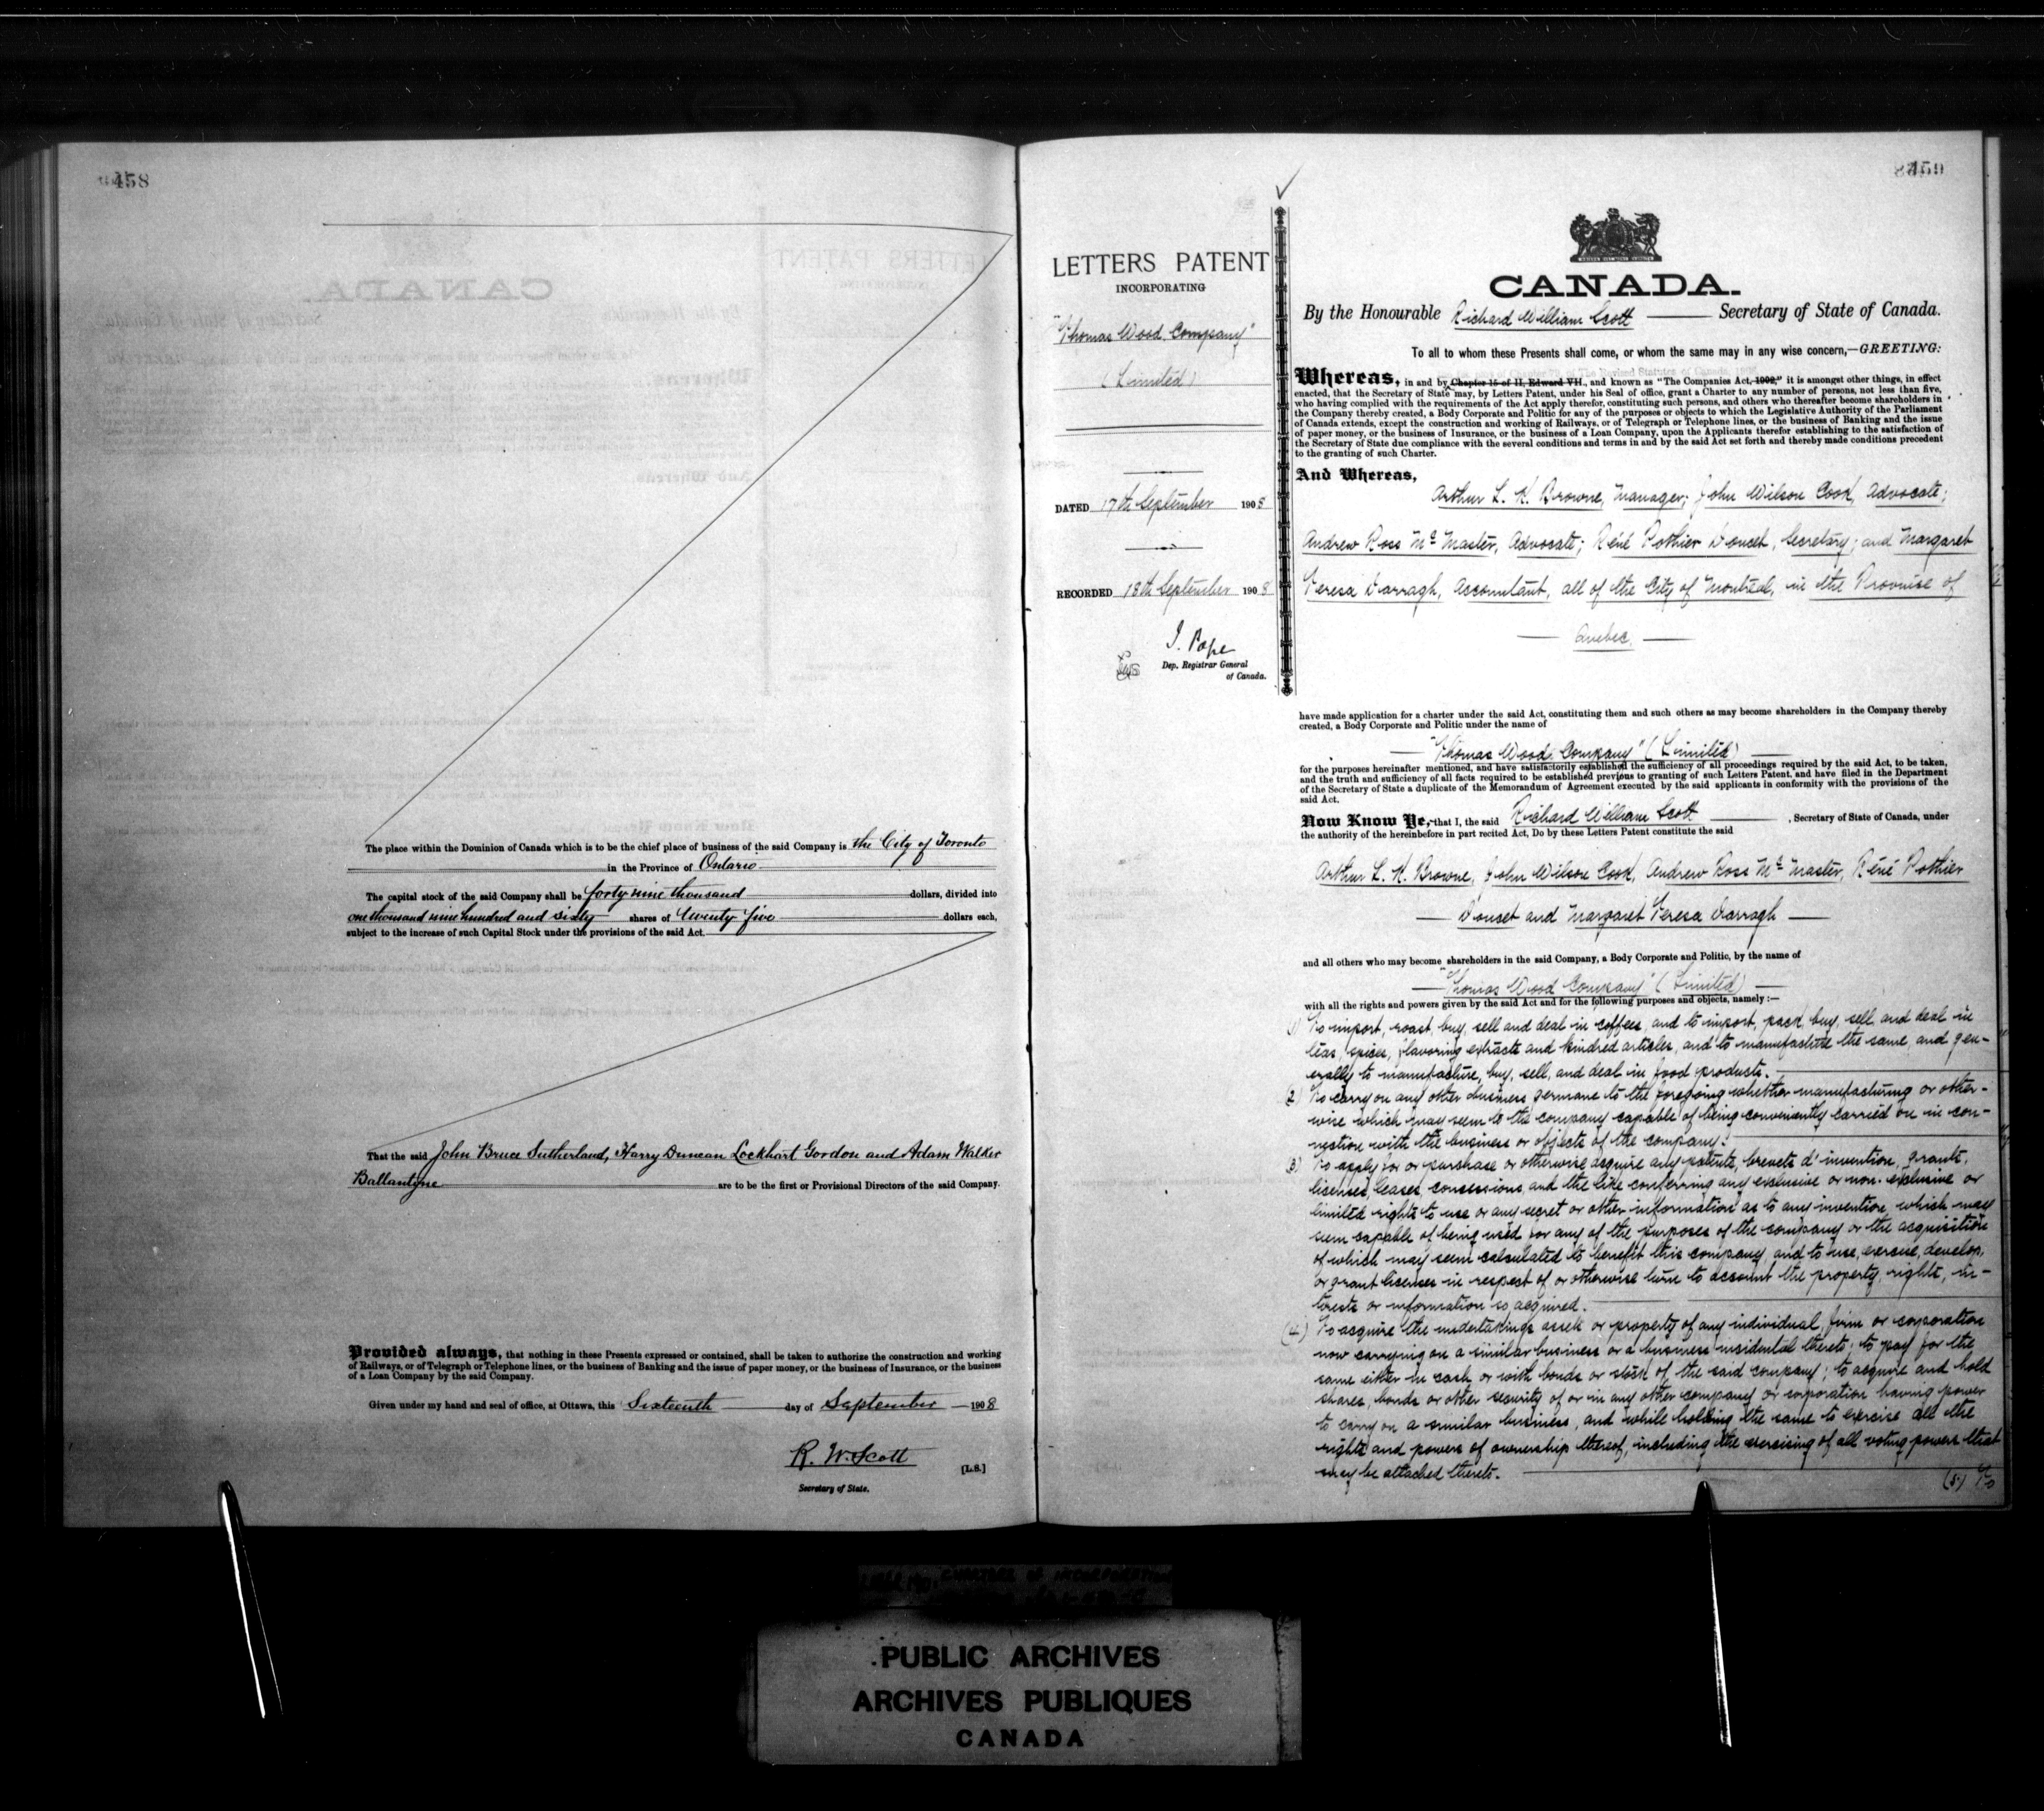 458
The place within the Dominion of Canada which is to be the chief place of business of the said Company is the City of Toronto
in the Province of Ontario
The capital stock of the said Company shall be forty nine thousand dollars, divided into
one thousand nine hundred and sixty shares of twenty five dollars each,
subject to the increase of such Capital Stock under the provisions of the said Act.
That the said John Bruce Sutherland, Harry Duncan Lockhart Gordon and Adam Walker
Ballantyne are to be the first or Provisional Directors of the said Company.
Provided always, that nothing in these Presents expressed or contained, shall be taken to authorize the construction and working
of Railways, or of Telegraph or Telephone lines, or the business of Banking and the issue of paper money, or the business of Insurance, or the business
of a Loan Company by the said Company.
Given under my hand and seal of office, at Ottawa, this Sixteenth day of September 1908
R. W. Scott
[L.S.]
Secretary of State.
459
LETTERS PATENT
INCORPORATING
"Thomas Wood Company"
(Limited)
DATED 17th September 1908
RECORDED 18th September 1908
J. Pope
Dep. Registrar General
of Canada.
CANADA.
By the Honourable Richard William Scott Secretary of State of Canada.
To all to whom these Presents shall come, or whom the same may in any wise concern,—GREETING:
Whereas, in and by Chapter 15 of II, Edward VII., and known as "The Companies Act, 1902," it is amongst other things, in effect
enacted, that the Secretary of State may, by Letters Patent, under his Seal of office, grant a Charter to any number of persons, not less than five,
who having complied with the requirements of the Act apply therefor, constituting such persons, and others who thereafter become shareholders in
the Company thereby created, a Body Corporate and Politic for any of the purposes or objects to which the Legislative Authority of the Parliament
of Canada extends, except the construction and working of Railways, or of Telegraph or Telephone lines, or the business of Banking and the issue
of paper money, or the business of Insurance, or the business of a Loan Company, upon the Applicants therefor establishing to the satisfaction of
the Secretary of State due compliance with the several conditions and terms in and by the said Act set forth and thereby made conditions precedent
to the granting of such Charter.
And Whereas,
Arthur L. K. Browne, Manager; John Wilson Cook, Advocate;
Andrew Ross McMaster, Advocate; Réné Pothier Doucet, Secretary; and Margaret
Teresa Darragh, Accountant, all of the City of Montreal, in the Province of
Quebec.
have made application for a charter under the said Act, constituting them and such others as may become shareholders in the Company thereby
created, a Body Corporate and Politic under the name of
"Thomas Wood Company" (Limited)
for the purposes hereinafter mentioned, and have satisfactorily established the sufficiency of all proceedings required by the said Act, to be taken,
and the truth and sufficiency of all facts required to be established previous to granting of such Letters Patent, and have filed in the Department
of the Secretary of State a duplicate of the Memorandum of Agreement executed by the said applicants in conformity with the provisions of the
said Act.
Now Know Ye, that I, the said Richard William Scott, Secretary of State of Canada, under
the authority of the hereinbefore in part recited Act, Do by these Letters Patent constitute the said
Arthur L. K. Browne, John Wilson Cook, Andrew Ross McMaster, Réné Pothier
Doucet and Margaret Teresa Darragh
and all others who may become shareholders in the said Company, a Body Corporate and Politic, by the name of
"Thomas Wood Company" (Limited)
with all the rights and powers given by the said Act and for the following purposes and objects, namely :—
1) To import, roast, buy, sell and deal in coffees, and to import, pack, buy, sell and deal in
teas, spices, flavoring extracts and kindred articles, and to manufacture the same, and gen-
erally to manufacture, buy, sell, and deal in food products.
2) To carry on any other business germane to the foregoing whether manufacturing or other-
wise which may seem to the company capable of being conveniently carried on in con-
nection with the business or objects of the company.
3) To apply for or purchase or otherwise acquire any patents, brevets d'invention, grants,
licenses, leases, concessions, and the like conferring any exclusive or non-exclusive or
limited rights to use or any secret or other information as to any invention, which may
seem capable of being used for any of the purposes of the company or the acquisition
of which may seem calculated to benefit this company, and to use, exercise, develop,
or grant licenses in respect of or otherwise turn to account the property, rights, in-
terests or information so acquired.
(4) To acquire the undertakings assets or property of any individual, firm or corporation
now carrying on a similar business or a business incidental thereto; to pay for the
same either in cash or with bonds or stock of the said company; to acquire and hold
shares, bonds or other security of or in any other company or corporation having power
to carry on a similar business, and while holding the same to exercise all the
rights and powers of ownership thereof, including the exercising of all voting powers that
may be attached thereto.
(5) To
PUBLIC ARCHIVES
ARCHIVES PUBLIQUES
CANADA